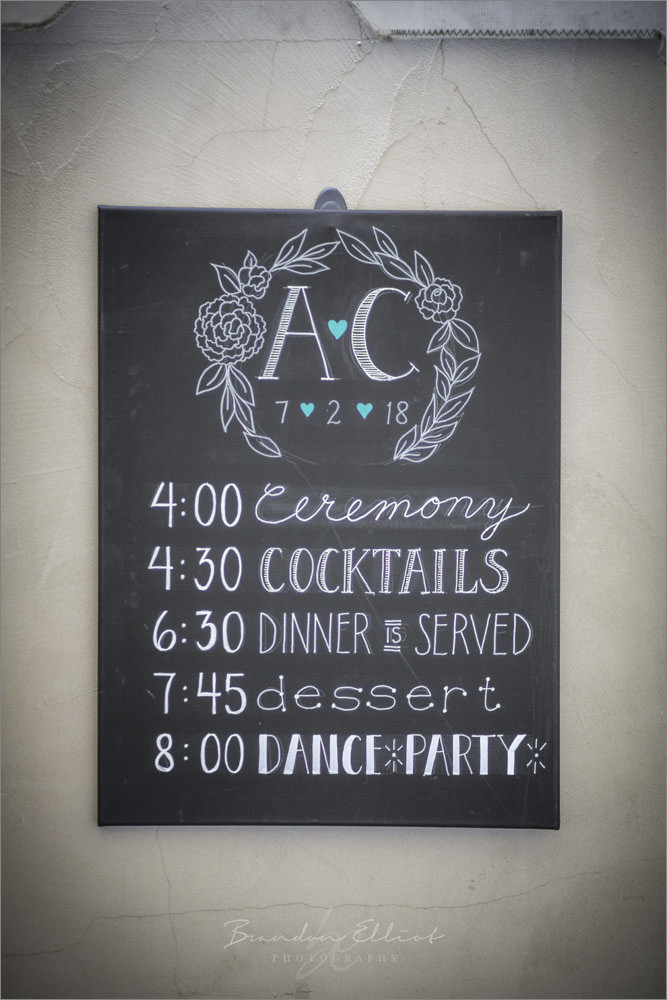 A♥C
7♥2♥18
4:00 Ceremony
4:30 COCKTAILS
6:30 DINNER IS SERVED
7:45 dessert
8:00 DANCE PARTY
Brandon Elliot
PHOTOGRAPHY